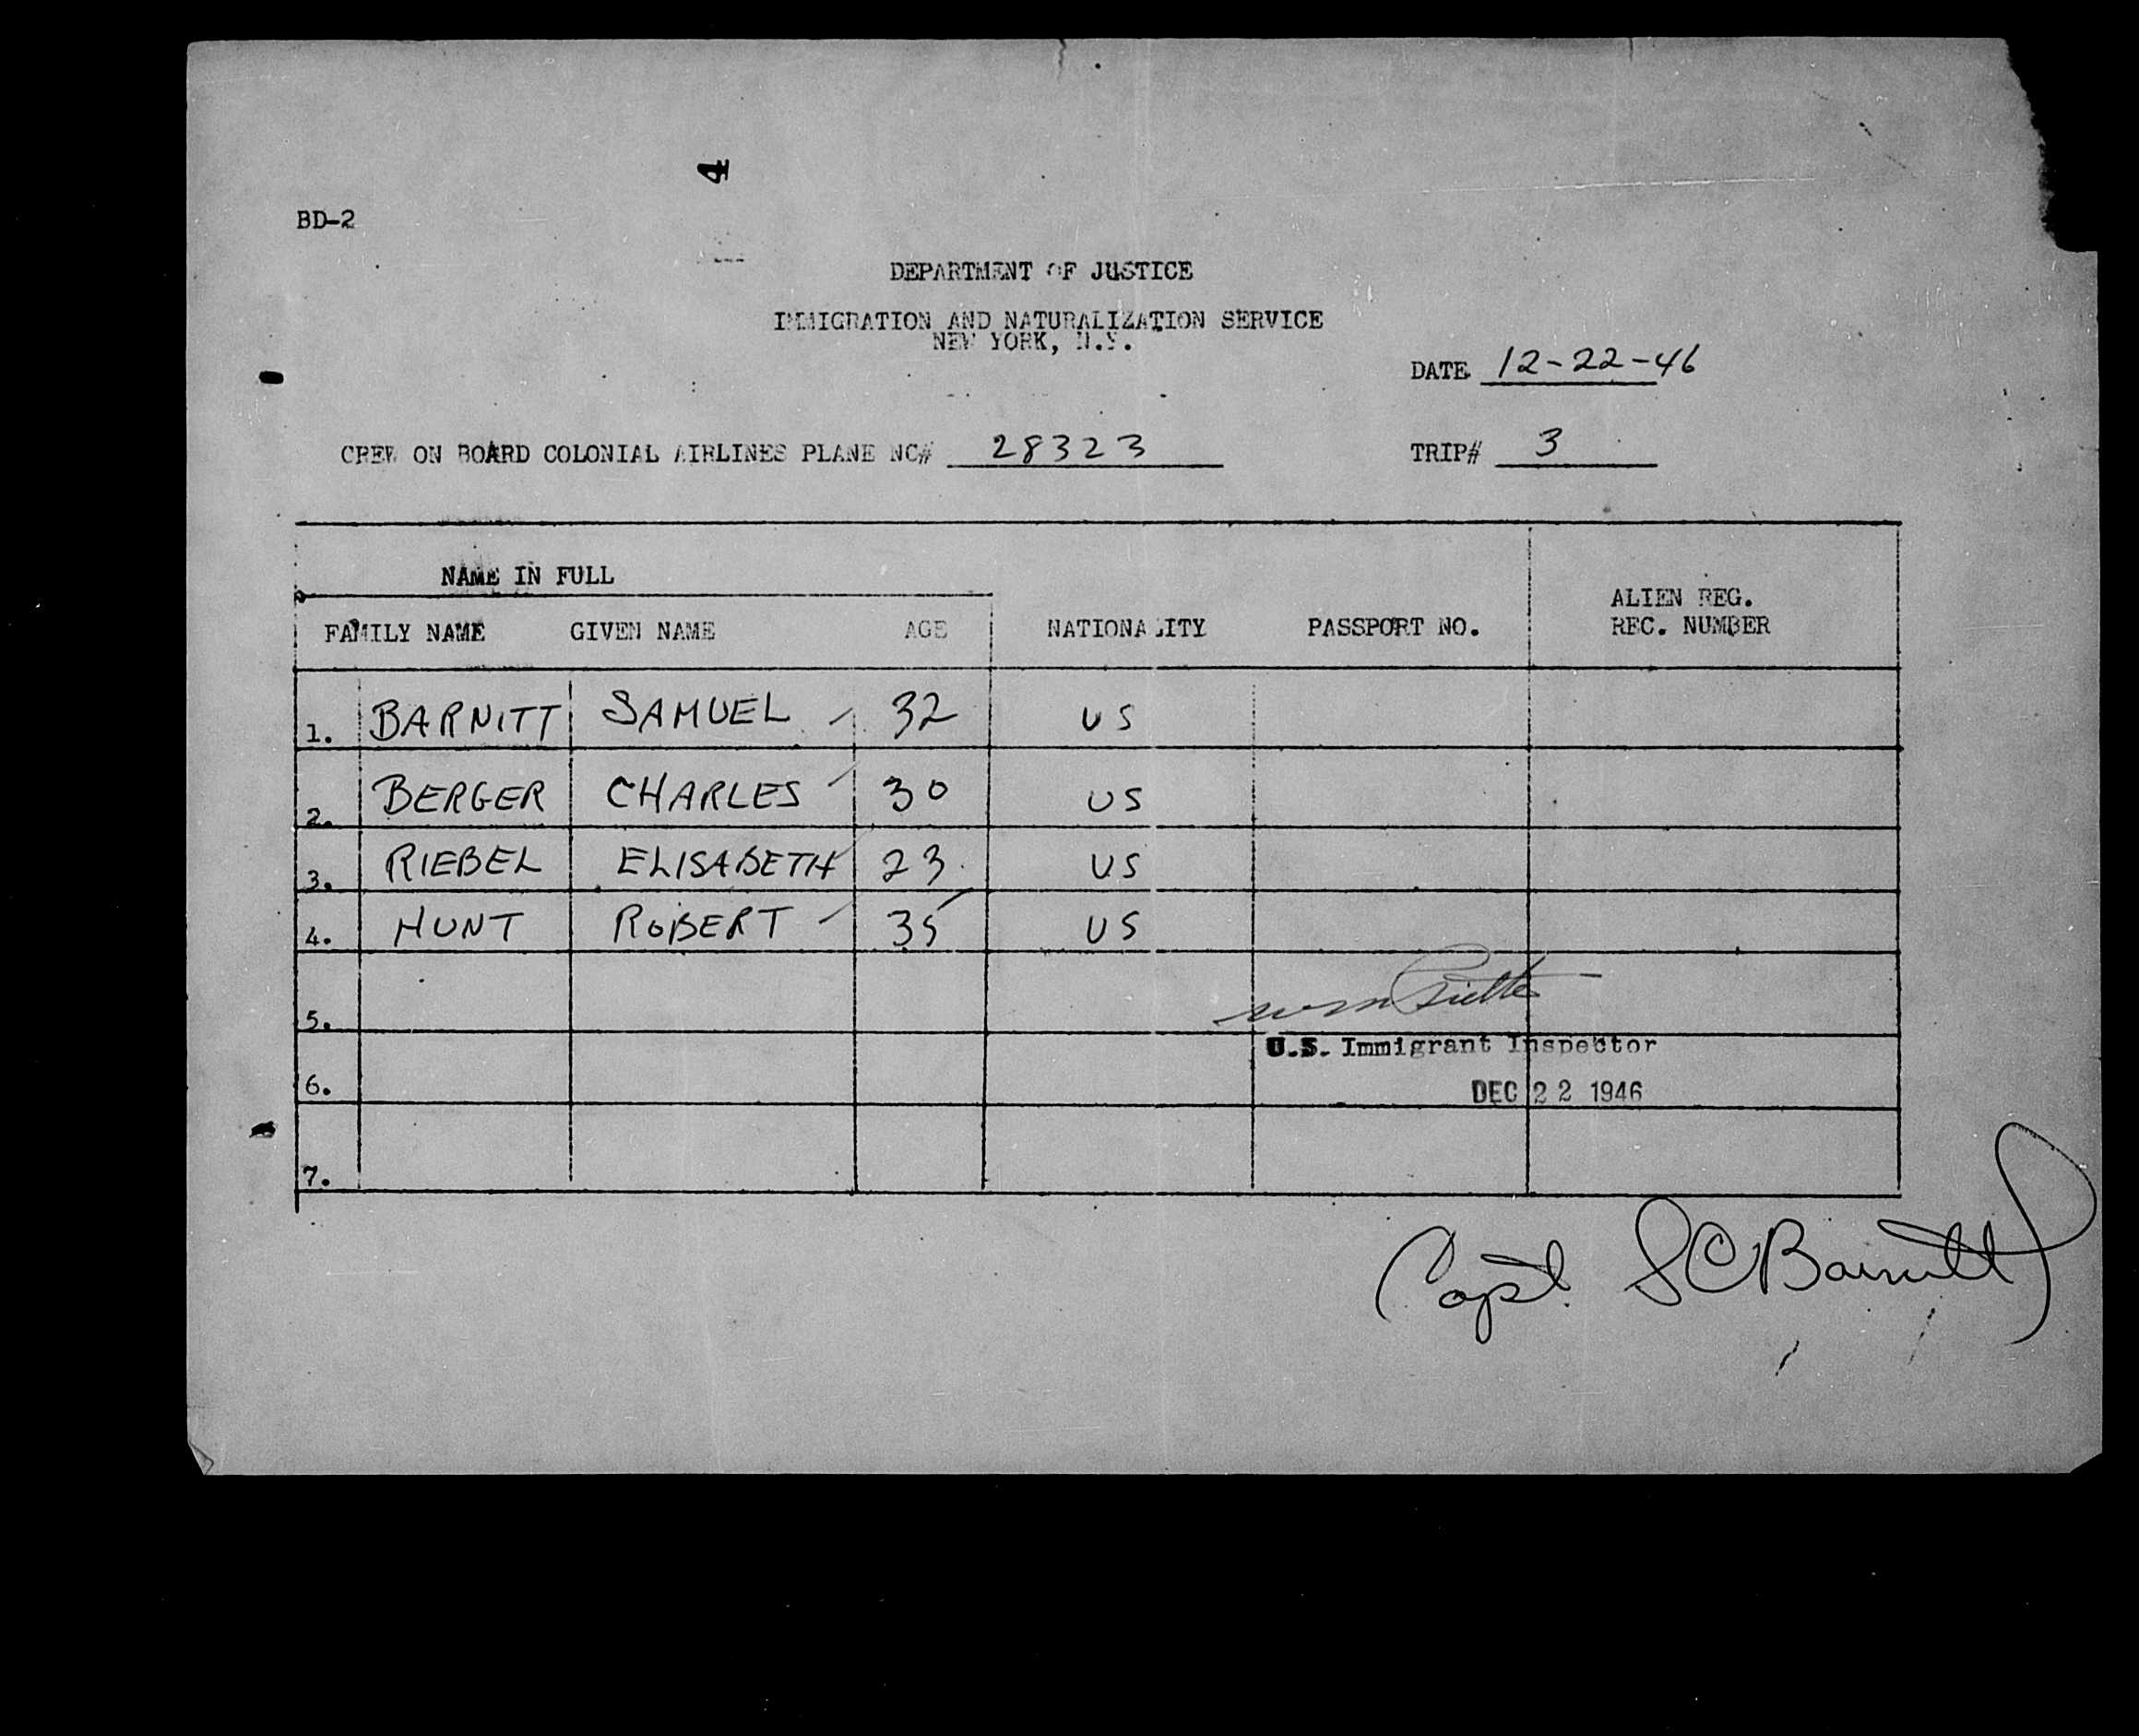 4
BD-2
DEPARTMENT OF JUSTICE
IMMIGRATION AND NATURALIZATION SERVICE
NEW YORK, N.Y.
DATE 12-22-46
CREW ON BOARD COLONIAL AIRLINES PLANE NC# 28323 TRIP# 3
NAME IN FULL
FAMILY NAME GIVEN NAME AGE NATIONALITY PASSPORT NO. ALIEN REG.
REC. NUMBER
1. BARNITT SAMUEL 32 US
2. BERGER CHARLES 30 US
3. RIEBEL ELISABETH 23 US
4. HUNT ROBERT 35 US
5.
U.S. Immigrant Inspector
6. DEC 22 1946
7.
Capt. SCBarnitt